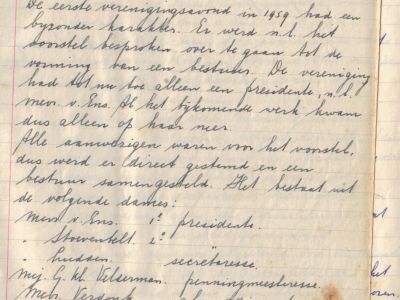 De eerste verenigingsavond in 1959 had een
byzonder karakter. Er werd n.l. het
voorstel besproken over te gaan tot de
vorming van een bestuur. De vereniging
had tot nu toe alleen een presidente, n.l.
mevr. v. Ens. Al het bykomende werk kwam
dus alleen op haar neer.
Alle aanwezigen waren voor het voorstel,
dus werd er direct gestemd en een
bestuur samengesteld. Het bestaat uit
de volgende dames:
Mevr. v. Ens. 1e presidente.
" 2e "
" secretaresse.
Mej. G. Kl. Velderman. penningmeesteresse.
Mevr. Verdonk
het